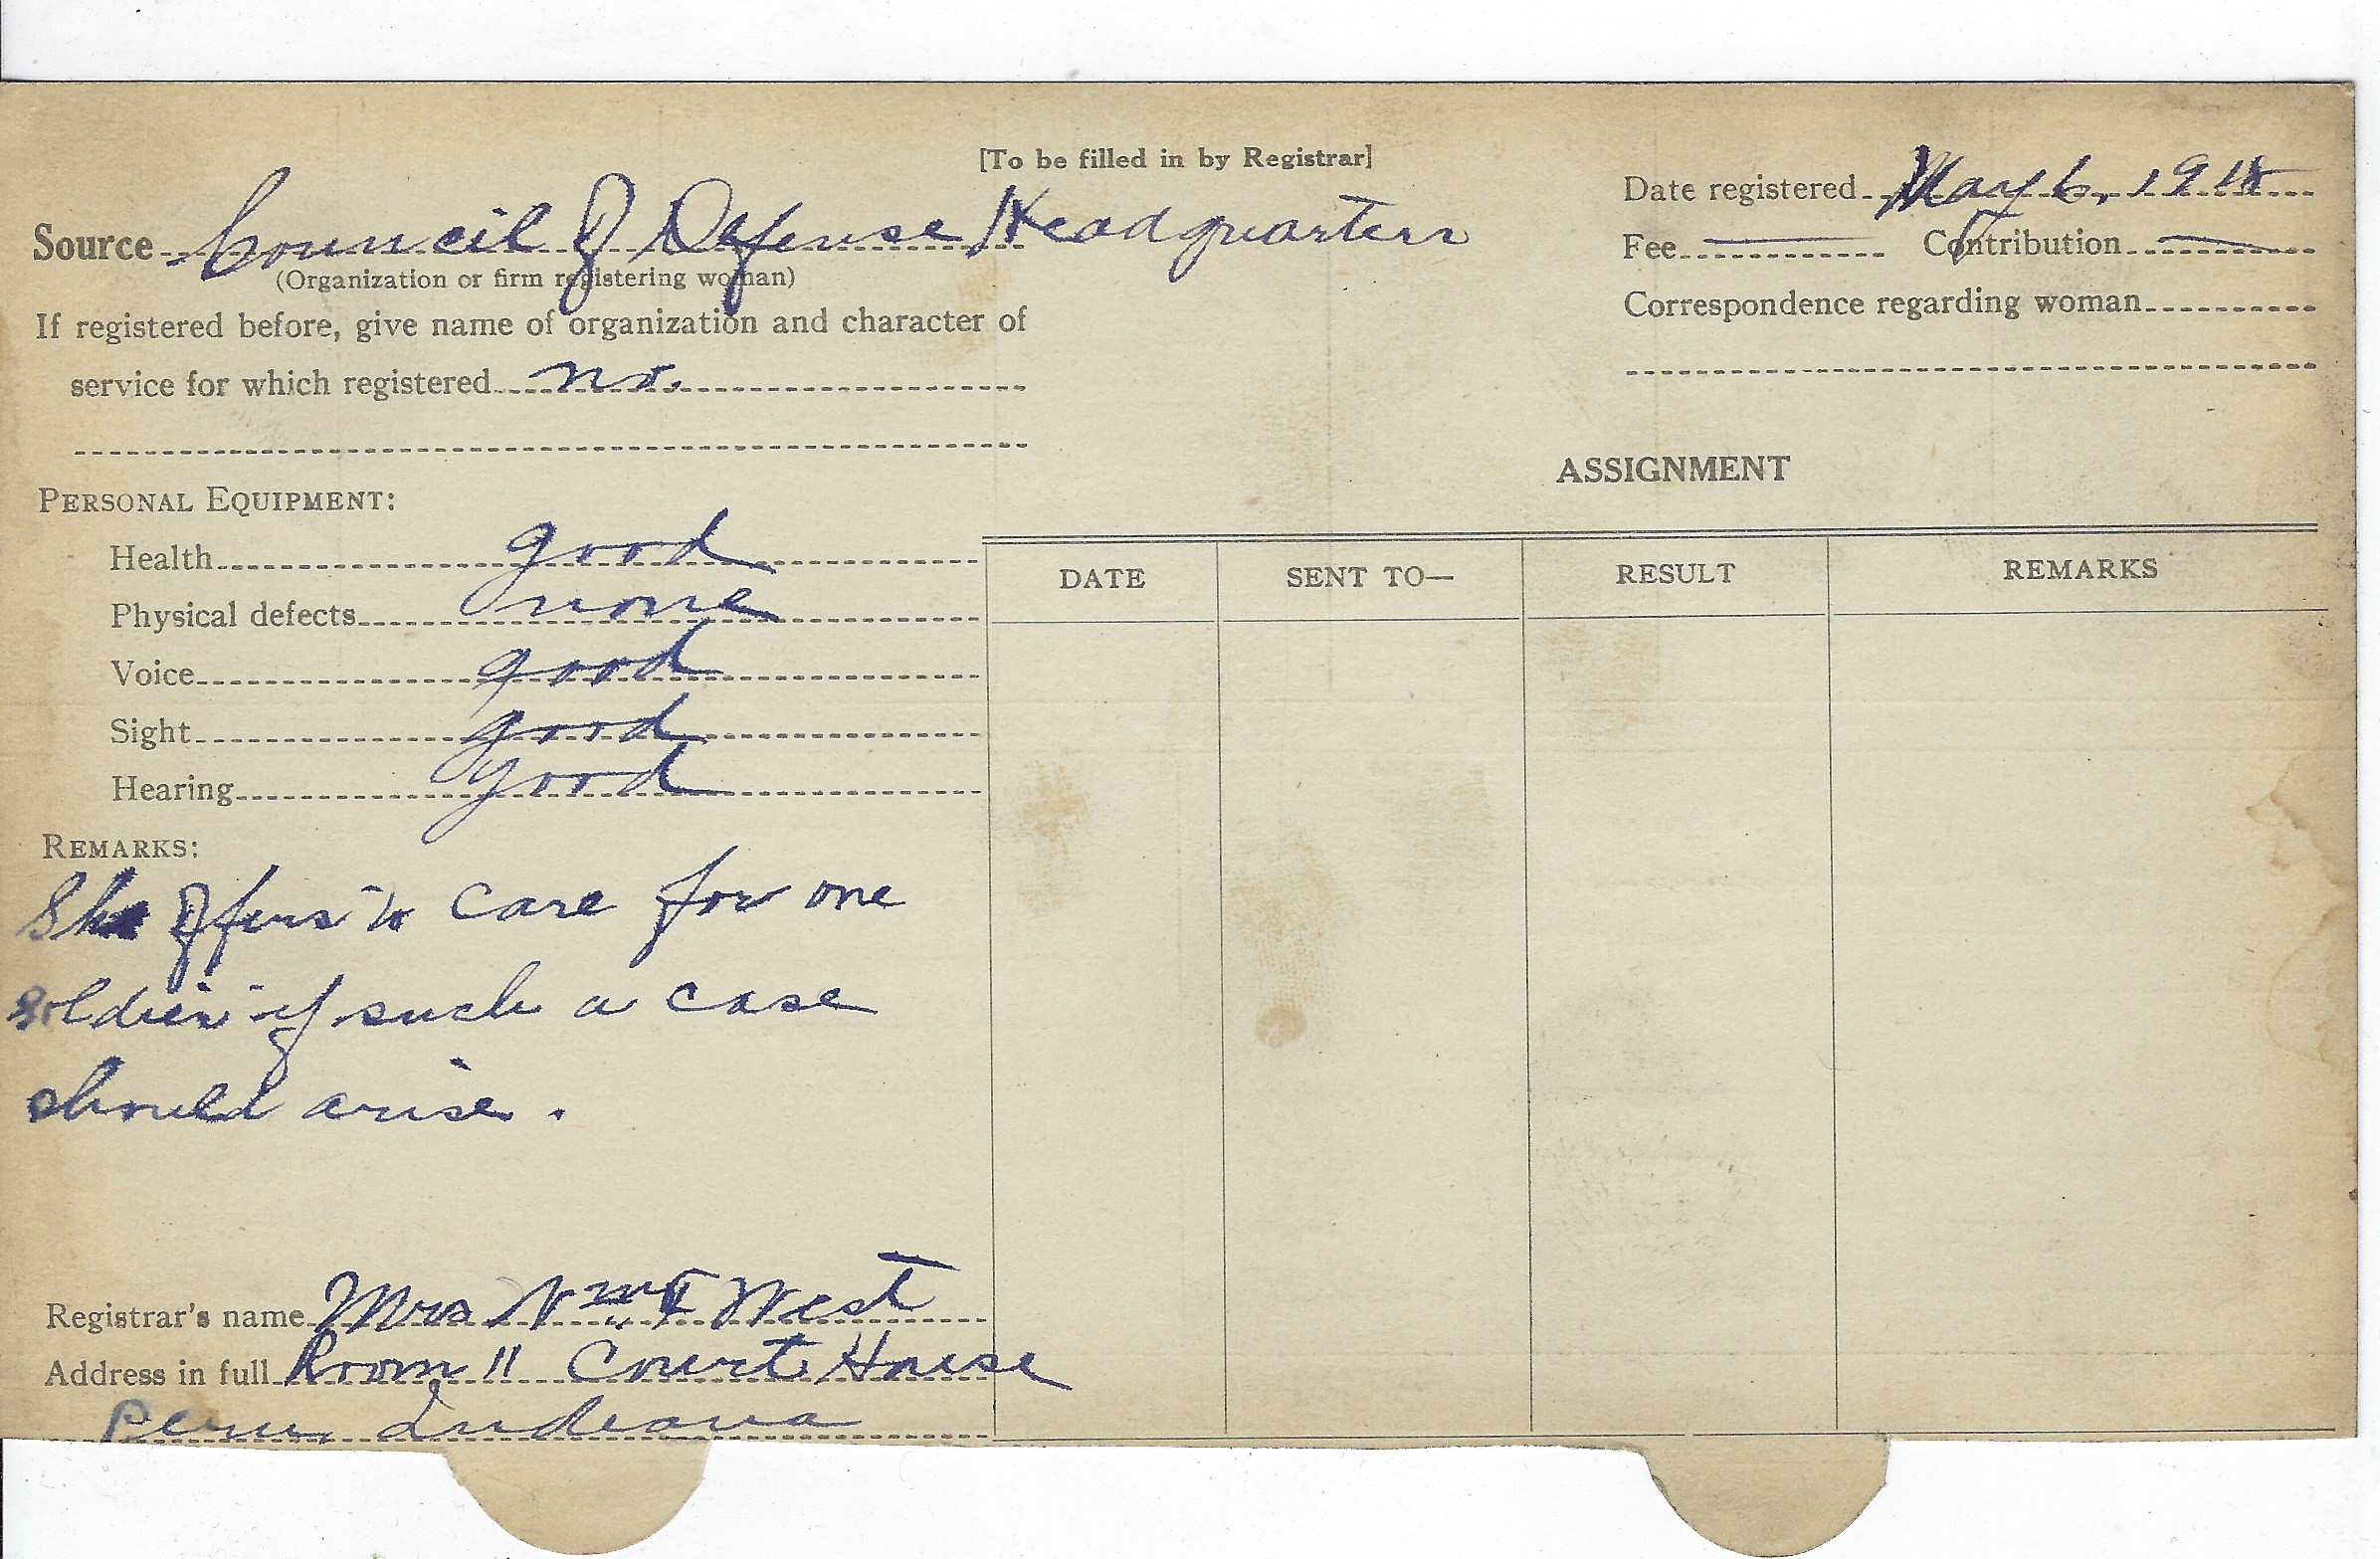 [To be filled in by Registrar]
Date registered May 6, 1918
Source Council of Defense Headquarters
(Organization or firm registering woman)
Fee Contribution
If registered before, give name of organization and character of
service for which registered no.
Correspondence regarding woman
ASSIGNMENT
PERSONAL EQUIPMENT:
Health good
Physical defects none
Voice good
Sight good
Hearing good
DATE SENT TO— RESULT REMARKS
REMARKS:
She offers to care for one
soldier if such a case
should arise.
Registrar's name Mrs West
Address in full Room 11 Court House
Peru, Indiana